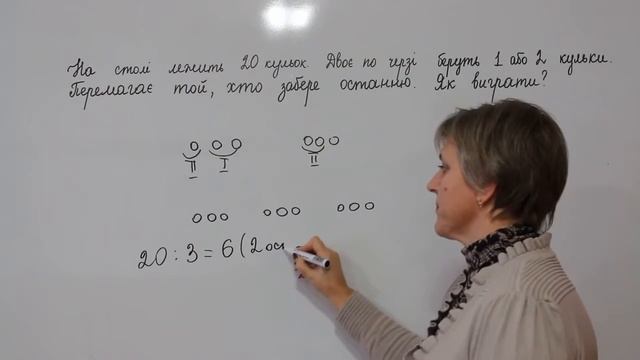 На столі лежить 20 кульок. Двоє по черзі беруть 1 або 2 кульки.
Перемагає той, хто забере останню. Як виграти?
II I II
20 : 3 = 6 (2 ос